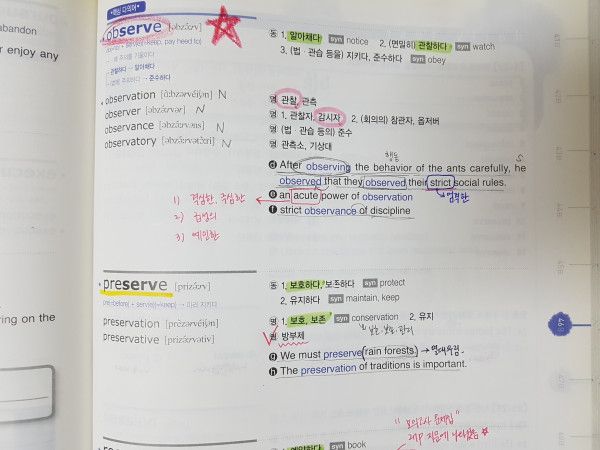 abandon
er enjoy any
ying on the
핵심 다의어
observe [əbzə́ːrv]
ob(to) + serve(=keep, pay heed to)
→ 관찰하다 → 알아채다
→ 준수하다
동 1. 알아채다 syn notice 2. (면밀히) 관찰하다 syn watch
3. (법·관습 등을) 지키다, 준수하다 syn obey
observation [ɑ̀bzərvéiʃən] N
명 관찰, 관측
observer [əbzə́ːrvər] N
명 1. 관찰자, 감시자 2. (회의의) 참관자, 옵저버
observance [əbzə́ːrvəns] N
명 (법·관습 등의) 준수
observatory [əbzə́ːrvətɔ̀ːri] N
명 관측소, 기상대
행동
ⓓ After observing the behavior of the ants carefully, he
S
observed that they observed their strict social rules.
엄격한
ⓔ an acute power of observation
ⓕ strict observance of discipline
1) 격심한, 극심한
2) 급성의
3) 예민한
preserve [prizə́ːrv]
pre(=before) + serve(=keep) → 미리 지키다
동 1. 보호하다, 보존하다 syn protect
2. 유지하다 syn maintain, keep
preservation [prèzərvéiʃən]
명 1. 보호, 보존 syn conservation 2. 유지
preservative [prizə́ːrvətiv]
명 방부제
ⓖ We must preserve rain forests. → 열대우림.
ⓗ The preservation of traditions is important.
"모의고사 문제집"
syn book